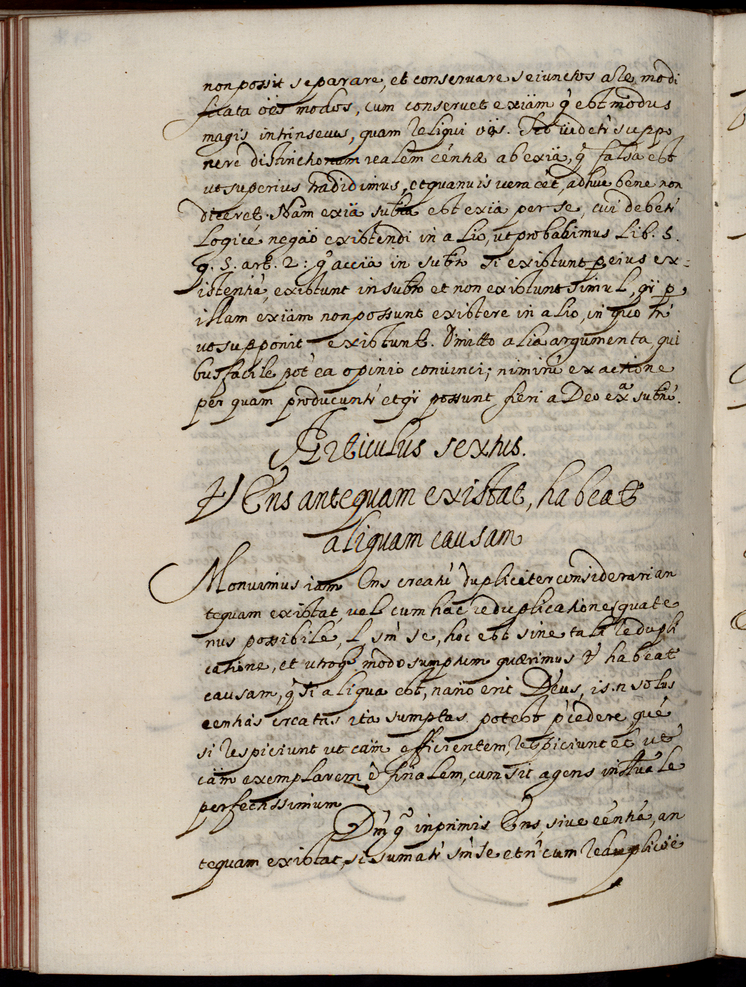 non possit separare, et conservare seiunctos a re modi
ficata oẽs modos, cum conservet exiãm q̃ est modus
magis intrinsecus, quam reliqui oẽs. Sed videtr̃ suppo
nere distinctionem realem eẽntiæ ab exiã, q̃ falsa est
ut superius tradidimus, et quamvis vera eẽt, adhuc bene non
diceret. Nam exiã subtæ est exiã per se, cui debetr̃
Logice negaõ existendi in alio, ut probabimus Lib. 5.
q. 5. art. 2: q̃ accia in subto si existunt per eius ex-
istentiã, existunt in subto et non existunt simul, qr̃ p
illam exiãm non possunt existere in alio, in quo tñ
ut supponit existunt. Omitto alia argumenta, qui
bus facile põt ea opinio convinci; nimirũ ex actione
per quam producuntr̃ et qr̃ possunt fieri a Deo exã subtũ.
Articulus sextus.
Vt Ens antequam existat, habeat
aliquam causam
Monuimus iam Ens creatũ dupliciter considerari an
tequam existat, vel cum hac reduplicatione, quate
nus possibile, l sm̃ se, hoc est sine tali redupli
catione, et utroq. modo sumptum quærimus ut habeat
causam, q̃ si aliqua est, na͠ no erit Deus, is.n. solus
eẽntiãs creatas ita sumptas potest p̃cedere, quẽ
si respiciunt ut caũm efficientem, respiciunt et ut
caũm exemplarem et finalem, cum sit agens intũale
perfectissimum
Dm̃ q̃ inprimis Ens, sive eẽntiã, an
tequam existat, si sumatr̃ sm̃ se et ñ cum reduplicõe